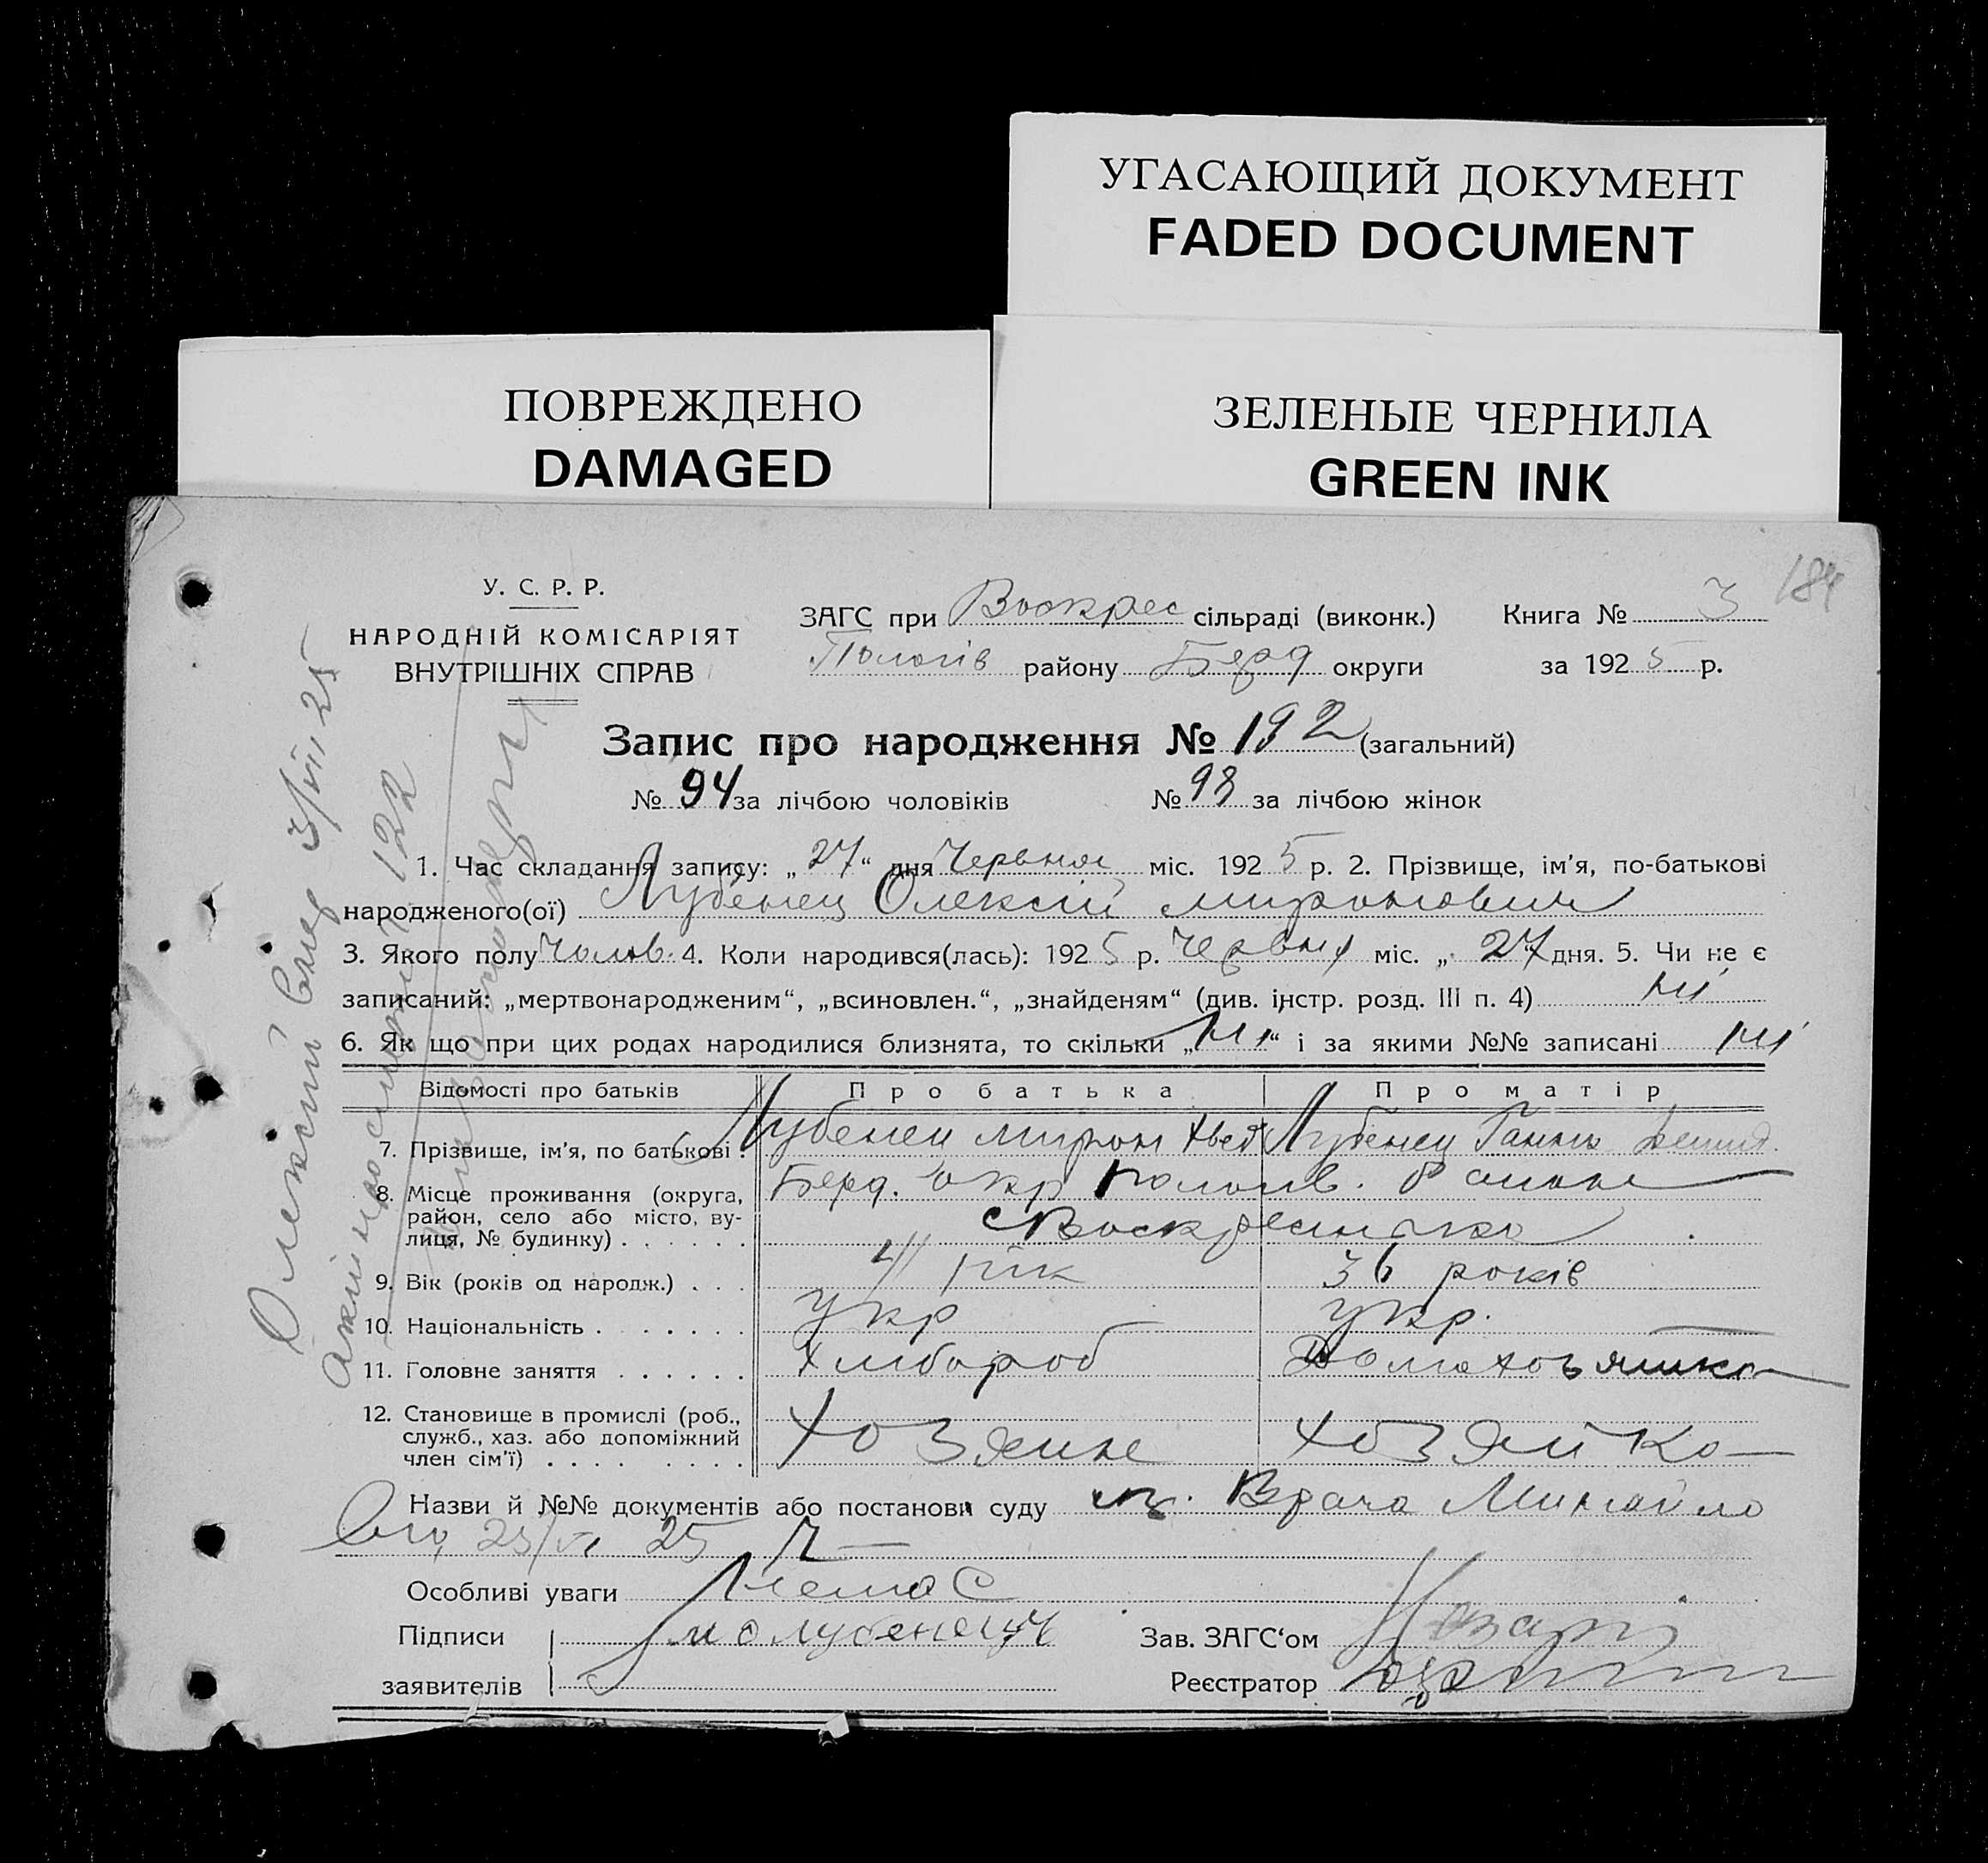 УГАСАЮЩИЙ ДОКУМЕНТ
FADED DOCUMENT
ПОВРЕЖДЕНО
DAMAGED
ЗЕЛЕНЫЕ ЧЕРНИЛА
GREEN INK
184
У. С. Р. Р.
НАРОДНІЙ КОМІСАРІЯТ
ВНУТРІШНІХ СПРАВ
ЗАГС при Воскрес сільраді (виконк.) Книга № 3
Пологів району Берд округи за 1925 р.
Запис про народження № 192 (загальний)
№ 94 за лічбою чоловіків № 98 за лічбою жінок
1. Час складання запису: „27“ дня Червня міс. 1925 р. 2. Прізвище, ім’я, по-батькові
народженого(ої) Лубенец Олексій Миронович
3. Якого полу Чолов. 4. Коли народився(лась): 1925 р. Червня міс. „27 дня. 5. Чи не є
записаний: „мертвонародженим“, „всиновлен.“, „знайденям“ (див. інстр. розд. III п. 4) ні
6. Як що при цих родах народилися близнята, то скільки „Ні“ і за якими №№ записані ні
Відомості про батьків Про батька Про матір
7. Прізвище, ім’я, по батькові. Лубенец Мирон Хвед Лубенец Ганна
8. Місце проживання (округа, Берд. окр Пологів.
район, село або місто, ву- с Воскресенка
лиця, № будинку) . . . . . .
9. Вік (років од народж.) . . . 41 рік 36 років
10. Національність . . . . . . . укр укр.
11. Головне заняття . . . . . . Хлибороб Домохозяйка
12. Становище в промислі (роб.,
служб., хаз. або допоміжний хозяин хозяйка
член сім’ї) . . . . . . . .
Назви й №№ документів або постанови суду Врача Михайло
25
Особливі уваги Нема
Підписи Лубенец Зав. ЗАГС‘ом
заявителів Реєстратор
Олексій вмер 3/VII 25
122